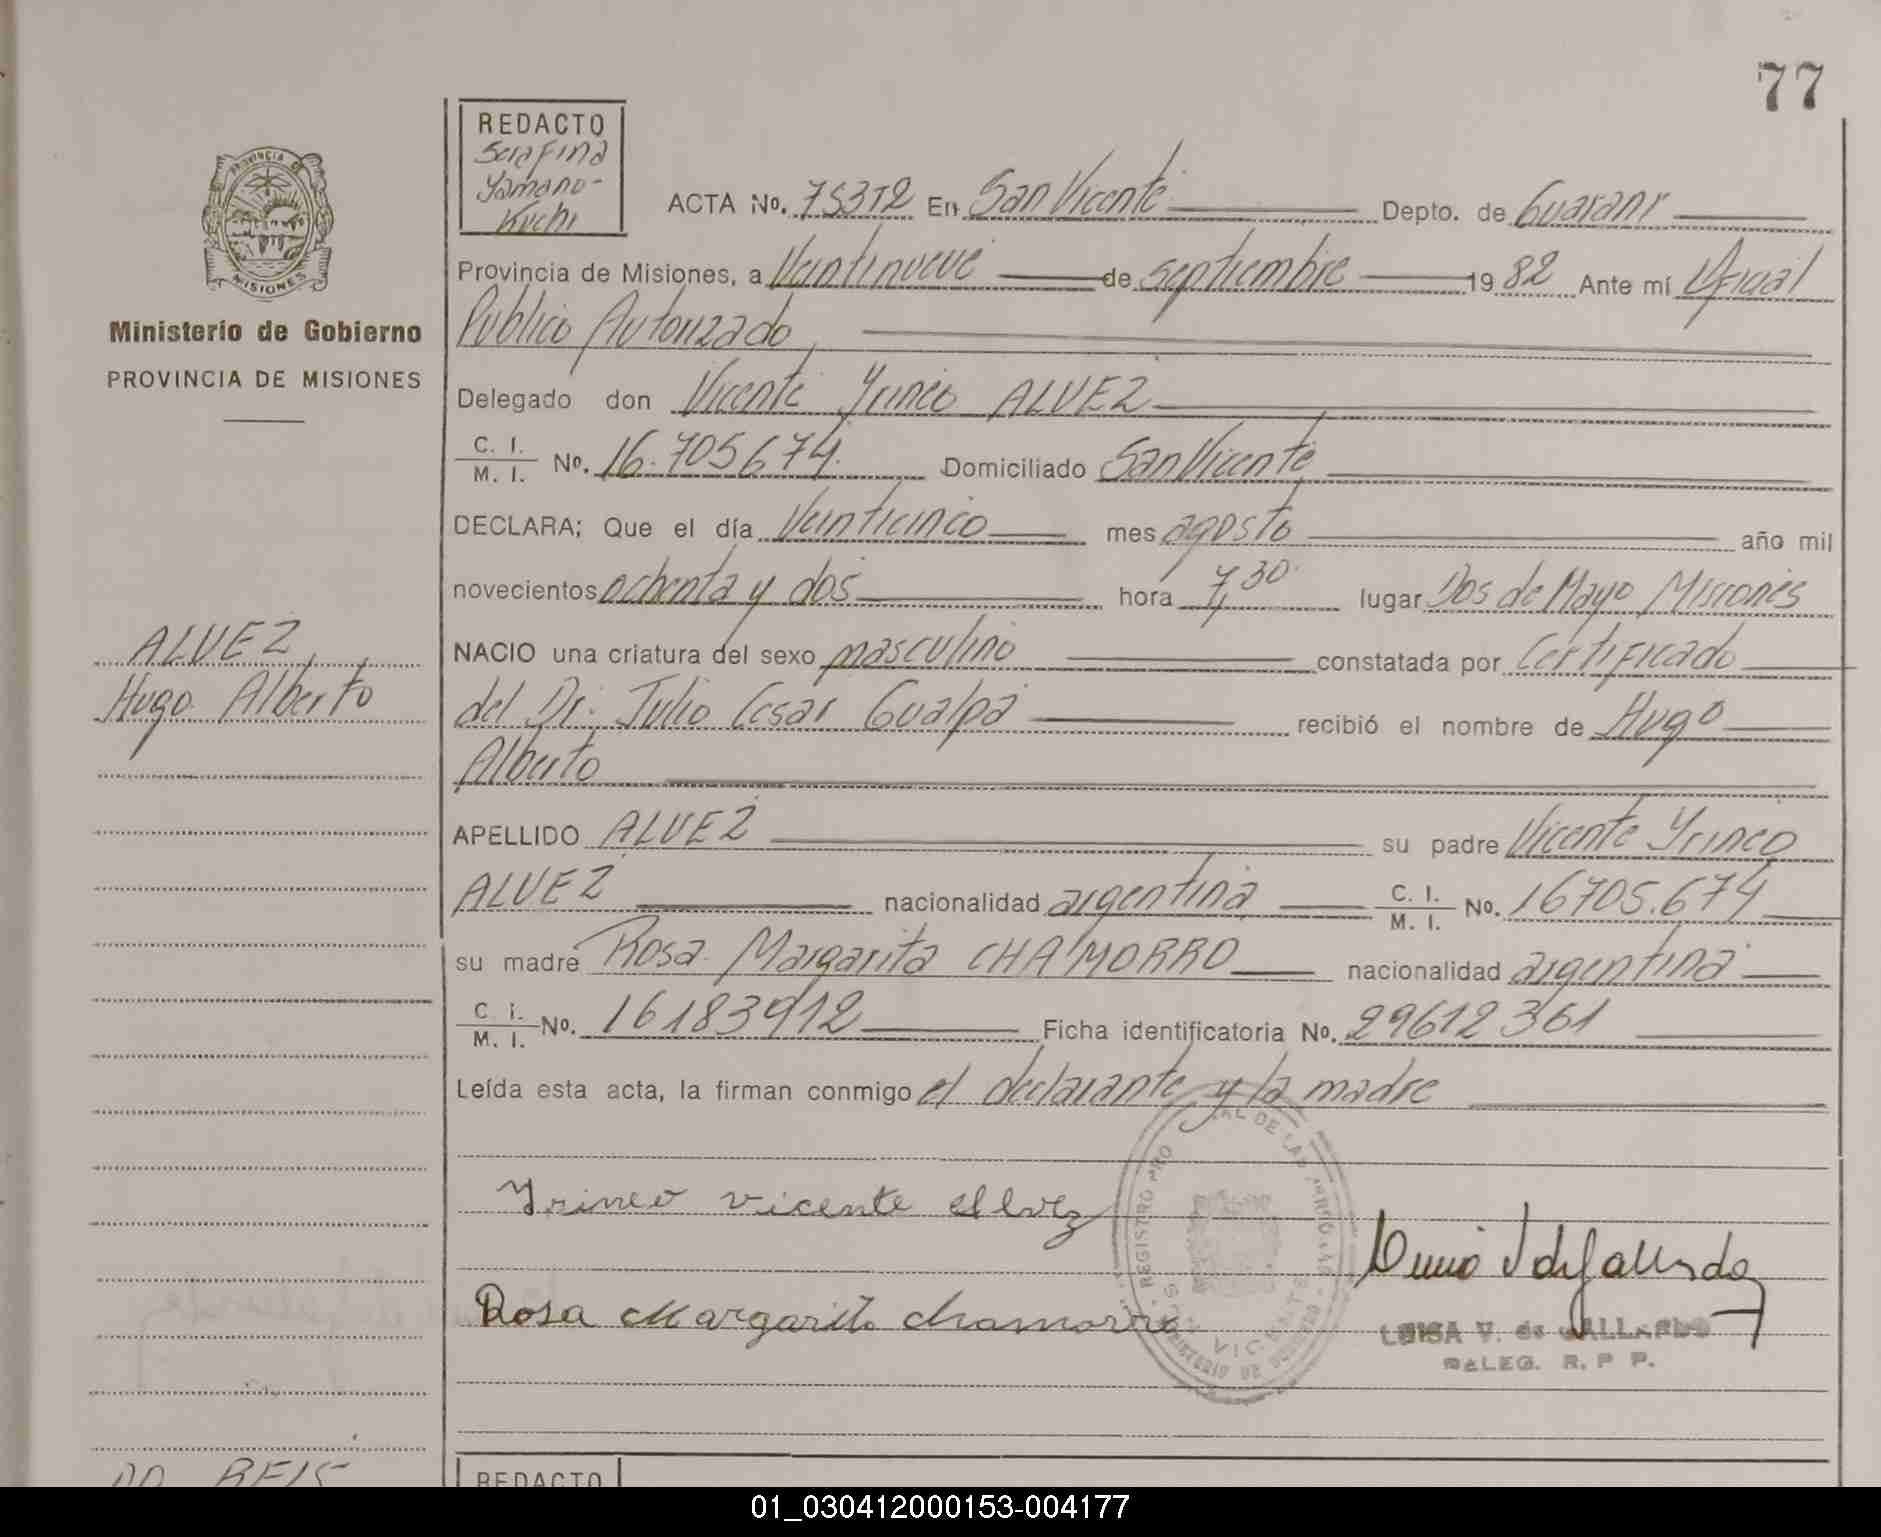 77
REDACTO
Serafina
Yamano-
Kuchi
ACTA No. 75312 En San Vicente Depto. de Guarani
PROVINCIA DE
MISIONES
Provincia de Misiones, a Veintinueve de septiembre 1982 Ante mí Oficial
Ministerio de Gobierno
PROVINCIA DE MISIONES
Publico Autorizado,
Delegado don Vicente Yrineo ALVEZ
C. I.
M. I. No. 16.705674. Domiciliado San Vicente
DECLARA; Que el día Veinticinco mes agosto año mil
novecientos ochenta y dos hora 7,30 lugar Dos de Mayo Misiones
ALVEZ,
Hugo Alberto
NACIO una criatura del sexo masculino constatada por Certificado
del Dr. Julio Cesar Gualpa recibió el nombre de Hugo
Alberto
APELLIDO ALVEZ su padre Vicente Yrineo
ALVEZ nacionalidad argentina C. I. M. I. No. 16705.674
su madre Rosa Margarita CHAMORRO nacionalidad argentina
C. I.
M. I. No. 16183912 Ficha identificatoria No. 29612361
Leída esta acta, la firman conmigo el declarante y la madre
Yrineo vicente Alvez
Rosa Margarita chamorro
REGISTRO PRO AL DE LAS PERSONAS
VICENTE
MINISTERIO DE GOBIERNO
LUISA V. de GALLARDO
DELEG. R. P P.
DO REIS
REDACTO
01_030412000153-004177